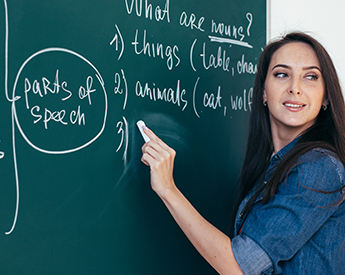 What are nouns?
1) things (table, chair
2) animals (cat, wolf
3)
parts of
speech